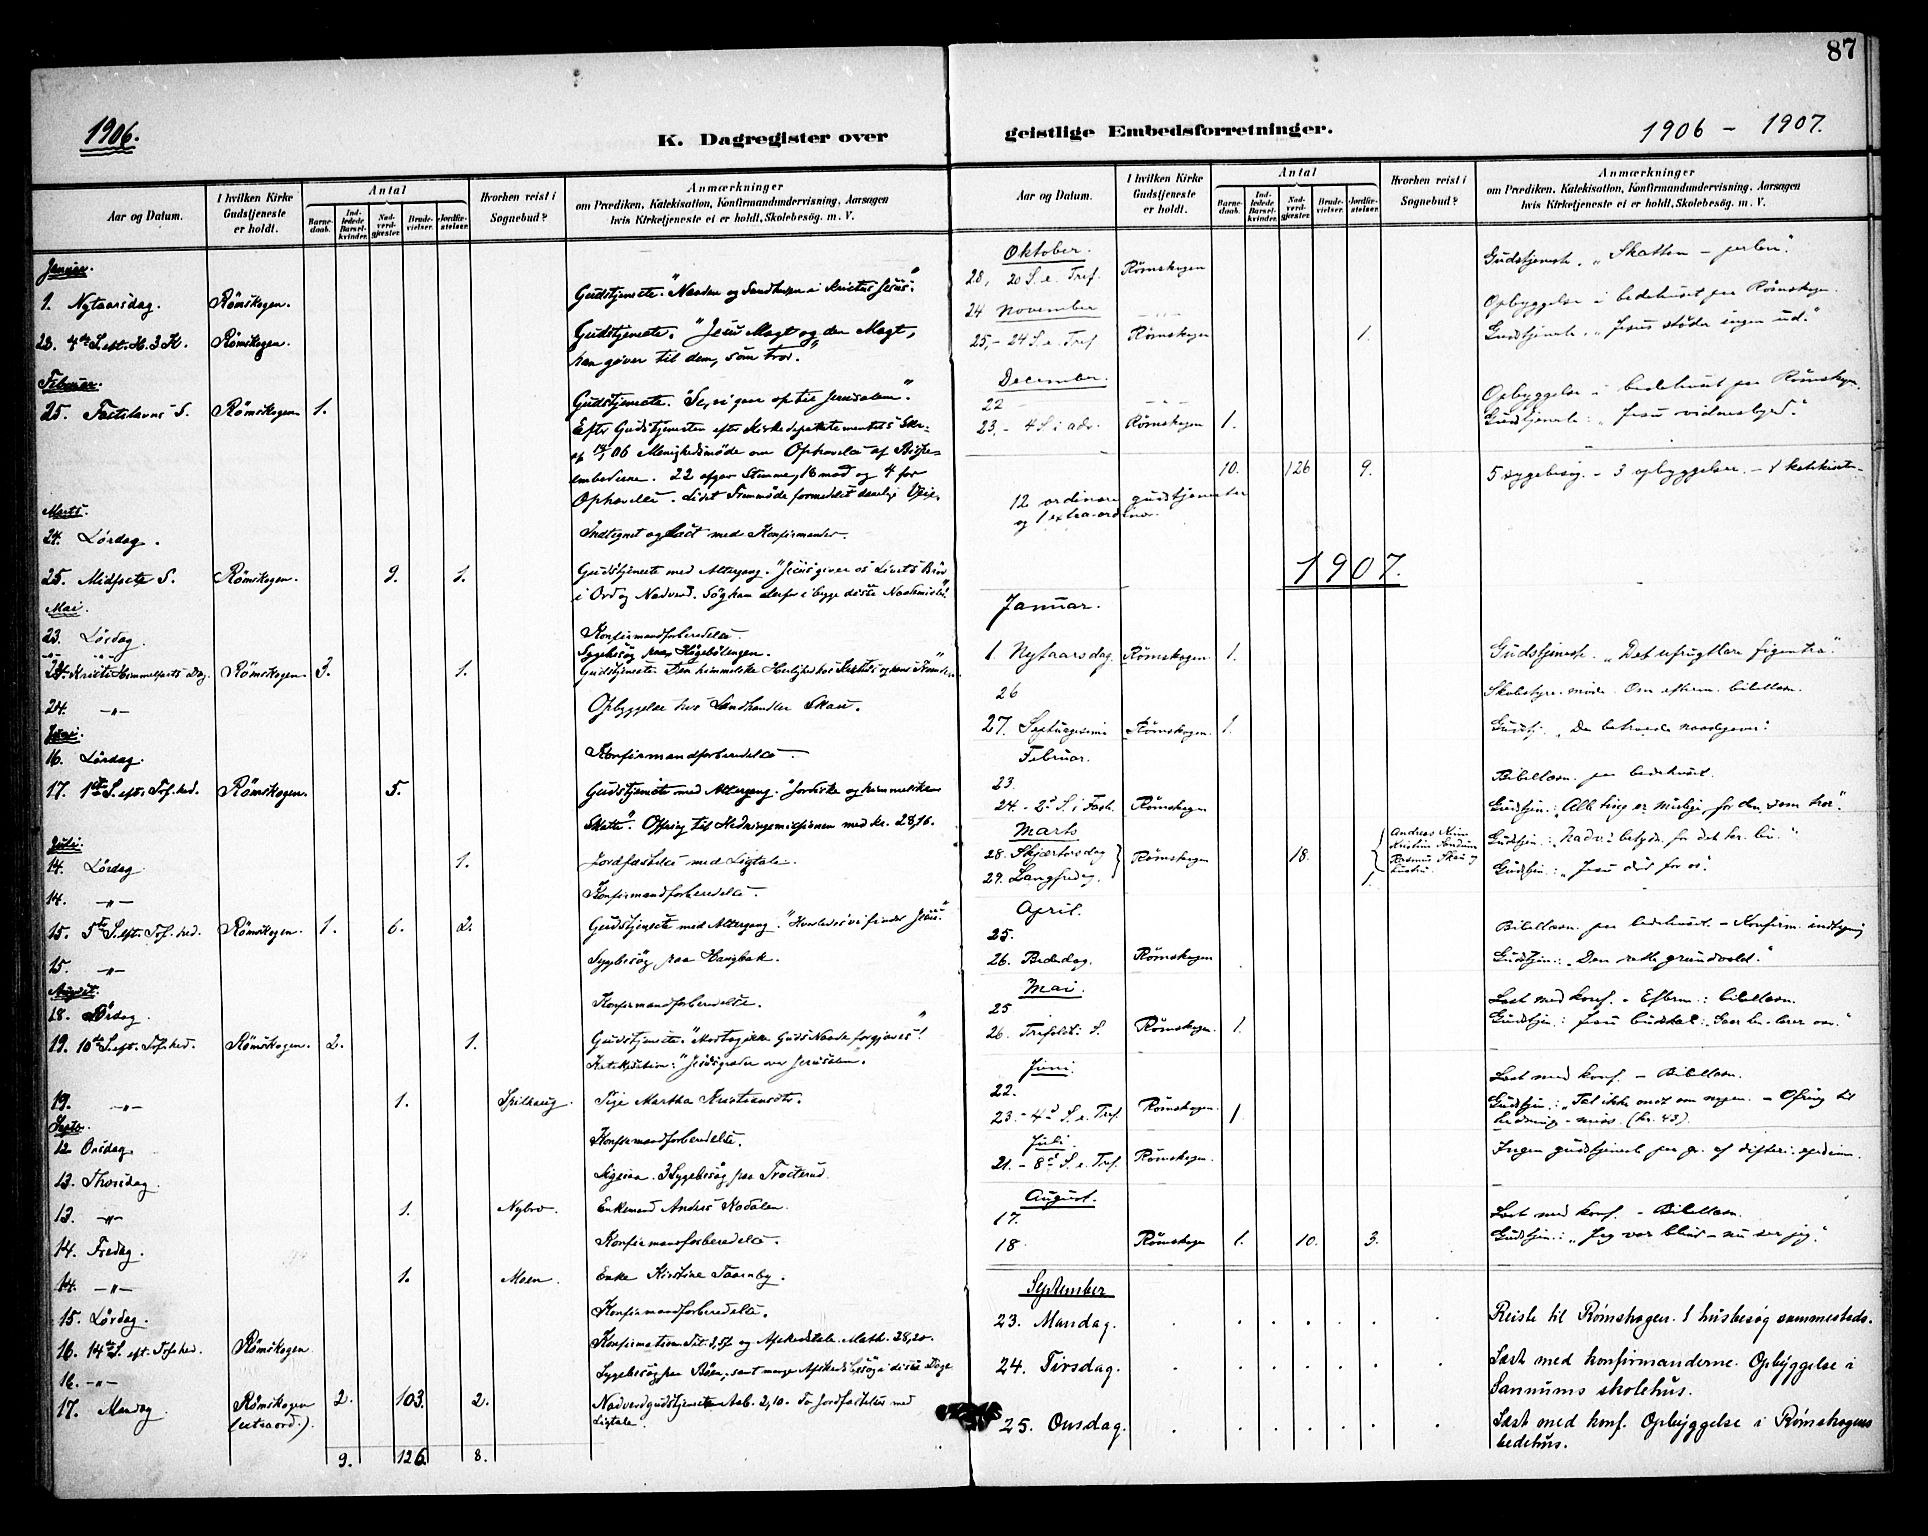 87
1906.
K. Dagregister over
Aar og Datum.
I hvilken Kirke Gudstjeneste er holdt.
Antal
Barnedaab.
Indledede Barselkvinder.
Nadverdgjæster.
Brudevielser.
Jordfæstelser.
Hvorhen reist i Sognebud?
Anmærkninger
om Prædiken, Katekisation, Konfirmandundervisning, Aarsagen
hvis Kirketjeneste ei er holdt, Skolebesøg. m. V.
Januar.
1. Nytaarsdag. Römskogen. Gudstjeneste. "Naaden og Sandheden i Kristus Jesus."
28. 4de S. eft. H. 3 K. Römskogen. Gudstjeneste. "Jesu Magt og den Magt,
han giver til dem, som tror."
Februar.
25. Fastelavns S. Römskogen 1. Gudstjeneste. "Se, vi gaar op til Jerusalem."
Efter Gudstjenesten efter Kirkedepartementets
06 Menighedsmöde om Ophævelse af
embederne. 22 afgav Stemme, 18 mod og 4 for
Ophævelse. Lidet Fremmöde formedelst daarlig
Marts.
24. Lördag. Indtegnet og læst med Konfirmander.
25. Midfaste S. Römskogen. 9. 1. Gudstjeneste med Altergang. "Jesus giver os Livets Bröd
i Ord og Nadverd. Sög ham derfor i begge disse Naademidler."
Mai.
23. Lördag. Konfirmandforberedelse.
Sygebesög paa
24. Kristi Himmelfarts Dag. Römskogen. 3. 1. Gudstjeneste. Den himmelske Herlighed hos Kristus og hans
24. -"- Opbyggelse hos Landhandler Skau.
Juni
16. Lördag. Konfirmandforberedelse
17. 1ste S. eft. Tref.hed. Römskogen. 5. Gudstjeneste med Altergang. Jordiske og himmelske
Skatte". Offring til Hedningemissionen med kr. 28,16.
Juli.
14. Lördag 1. Jordfæstelse med Ligtale.
14. -"- Konfirmandforberedelse.
15. 5te S. eft. Tref.hed. Römskogen. 1. 6. 2. Gudstjeneste med Altergang. "Hvorledes vi finder Jesus."
15. -"- Sygebesög paa Haugbak.
August.
18. Lördag. Konfirmandforberedelse.
19. 10de S. eft. Tref.hed. Römskogen. 2. 1. Gudstjeneste. "Modtag ikke Guds Naade forgjæves"!
Katekisation: "Jesus græder over Jerusalem.
19. -"- 1. Spilhaug. Pige Martha Kristiansdtr.
Septr.
12 Onsdag Konfirmandforberedelse.
13. Thorsdag. Ligesaa. 3 Sygebesög paa Trosterud.
13. -"- 1. Nybro. Enkemand Anders Kodalen.
14. Fredag. Konfirmandforberedelse.
14. -"- 1. Moen. Enke Kirstine Taarnby.
15. Lördag. Konfirmandforberedelse.
16. 14de S. eft. Tref.hed. Römskogen Konfirmation. og Afskedstale. Math. 28,20.
16. -"- Sygebesög paa Böen, samt mange Afskedsbesög i disse Dage
17. Mandag Römskogen
(extraord.). 2. 103. 2. Nadverdgudstjeneste Aab. 2,10. To Jordfæstelser med
Ligtale.
9. 126. 8.
geistlige Embedsforretninger.
1906 - 1907.
Aar og Datum.
I hvilken Kirke Gudstjeneste er holdt.
Antal
Barnedaab.
Indledede Barselkvinder.
Nadverdgjæster.
Brudevielser.
Jordfæstelser.
Hvorhen reist i Sognebud?
Anmærkninger
om Prædiken, Katekisation, Konfirmandundervisning, Aarsagen
hvis Kirketjeneste ei er holdt, Skolebesøg. m. V.
Oktober.
28, 20 S. e. Tref. Rømskogen Gudstjeneste. "Skatten - perlen".
24 November -"- Opbyggelse i bedehuset paa Rømskogen.
25, - 24 S. e. Tref Rømskogen 1. Gudstjeneste. "Jesus støder ingen ud."
December.
22 -"- Opbyggelse i bedehuset paa Rømskogen.
23, - 4 S i adv. Rømskogen 1. Gudstjeneste: Jesu vidnesbyrd."
10. 126 9. 5 sygebesøg - 3 opbyggelser. - 1
12 ordinære gudstjenester
og 1 extraordinær.
1907.
Januar.
1. Nytaarsdag. Rømskogen. 1. Gudstjeneste. "Det ufrugtbare figentræ".
26 Skolestyre-møde. Om efterm. bibellæsn.
27. Septuagesima Rømskogen. 1. Gudstj. "De betroede naadegaver."
Februar.
23. Bibellæsn. paa bedehuset.
24. - 2den S. i Fast. Rømskogen Gudstjen.: Alle ting er mulige for den som tror."
Marts
28. Skjærtorsdag Rømskogen 18. Gudstjen.:
29. Langfredag. 1. Gudstjen.: "Jesu død for os."
April.
25. Bibellæsn. paa bedehuset. - Konfirm. indtegning
26. Bededag. Rømskogen Gudstjen.: "Den rette grundvold".
Mai.
25 Læst med konf. - Efterm: bibellæsn.
26. Trefold. S. Rømskogen. 1. Gudstjen: Jesu budskab:
Juni.
22. Læst med konf. - Bibellæsn.
23. - 4de S. e. Tref Rømskogen. 1 Gudstjen.: "Tal ikke ondt om nogen. - Ofring til
hedninge-miss. (kr. 43).
Juli.
21. - 8de S. e. Tref. Rømskogen. Ingen gudstjeneste paa gr. af difteri-epidemi.
August.
17. Læst med konf. - Bibellæsn.
18 Rømskogen 1. 10. 3. Gudstjen.: "Jeg var blind - nu ser jeg".
September
23. Mandag. Reiste til Rømskogen. 1 husbesøg sammesteds.
24. Tirsdag. Læst med konfirmanderne. Opbyggelse i
Sannums skolehus.
25. Onsdag. Læst med konf. Opbyggelse i Rømskogens
bedehus.